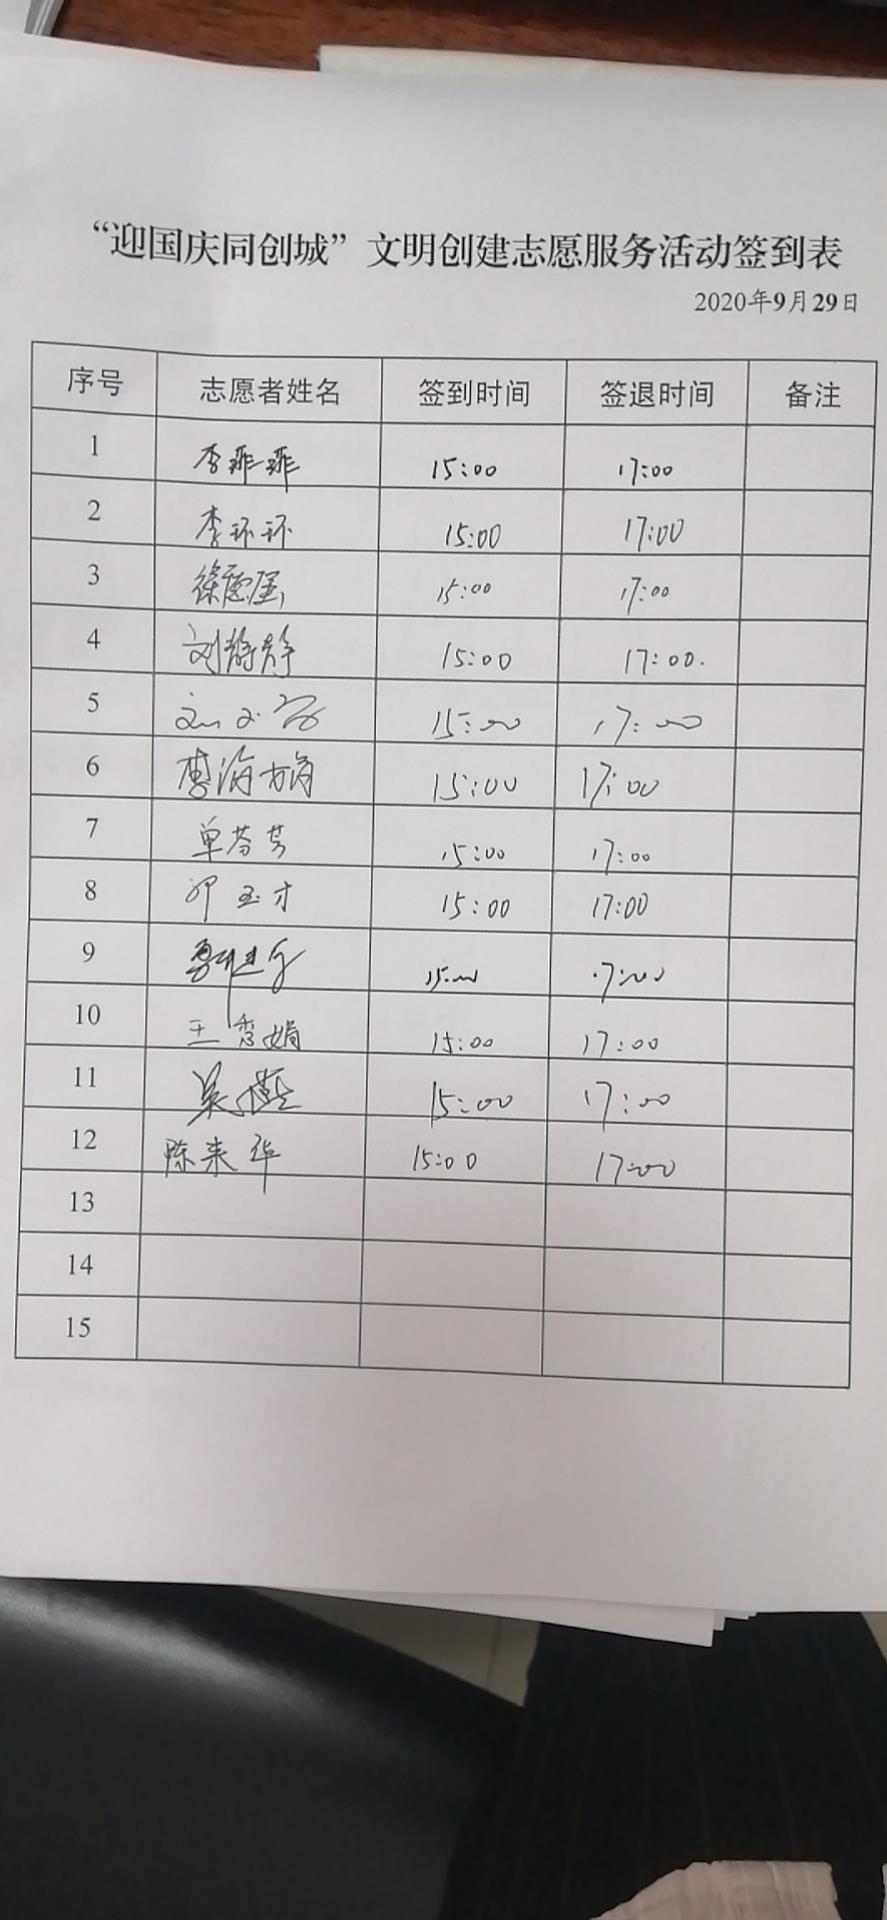 “迎国庆同创城”文明创建志愿服务活动签到表
2020年9月29日
序号 志愿者姓名 签到时间 签退时间 备注
1 李菲菲 15:00 17:00
2 李环环 15:00 17:00
3 徐德 15:00 17:00
4 刘静静 15:00 17:00.
5 15:00 17:00
6 15:00 17:00
7 单芬芳 15:00 17:00
8 玉才 15:00 17:00
9 15:00 17:00
10 王秀娟 15:00 17:00
11 吴 15:00 17:00
12 陈来华 15:00 17:00
13
14
15